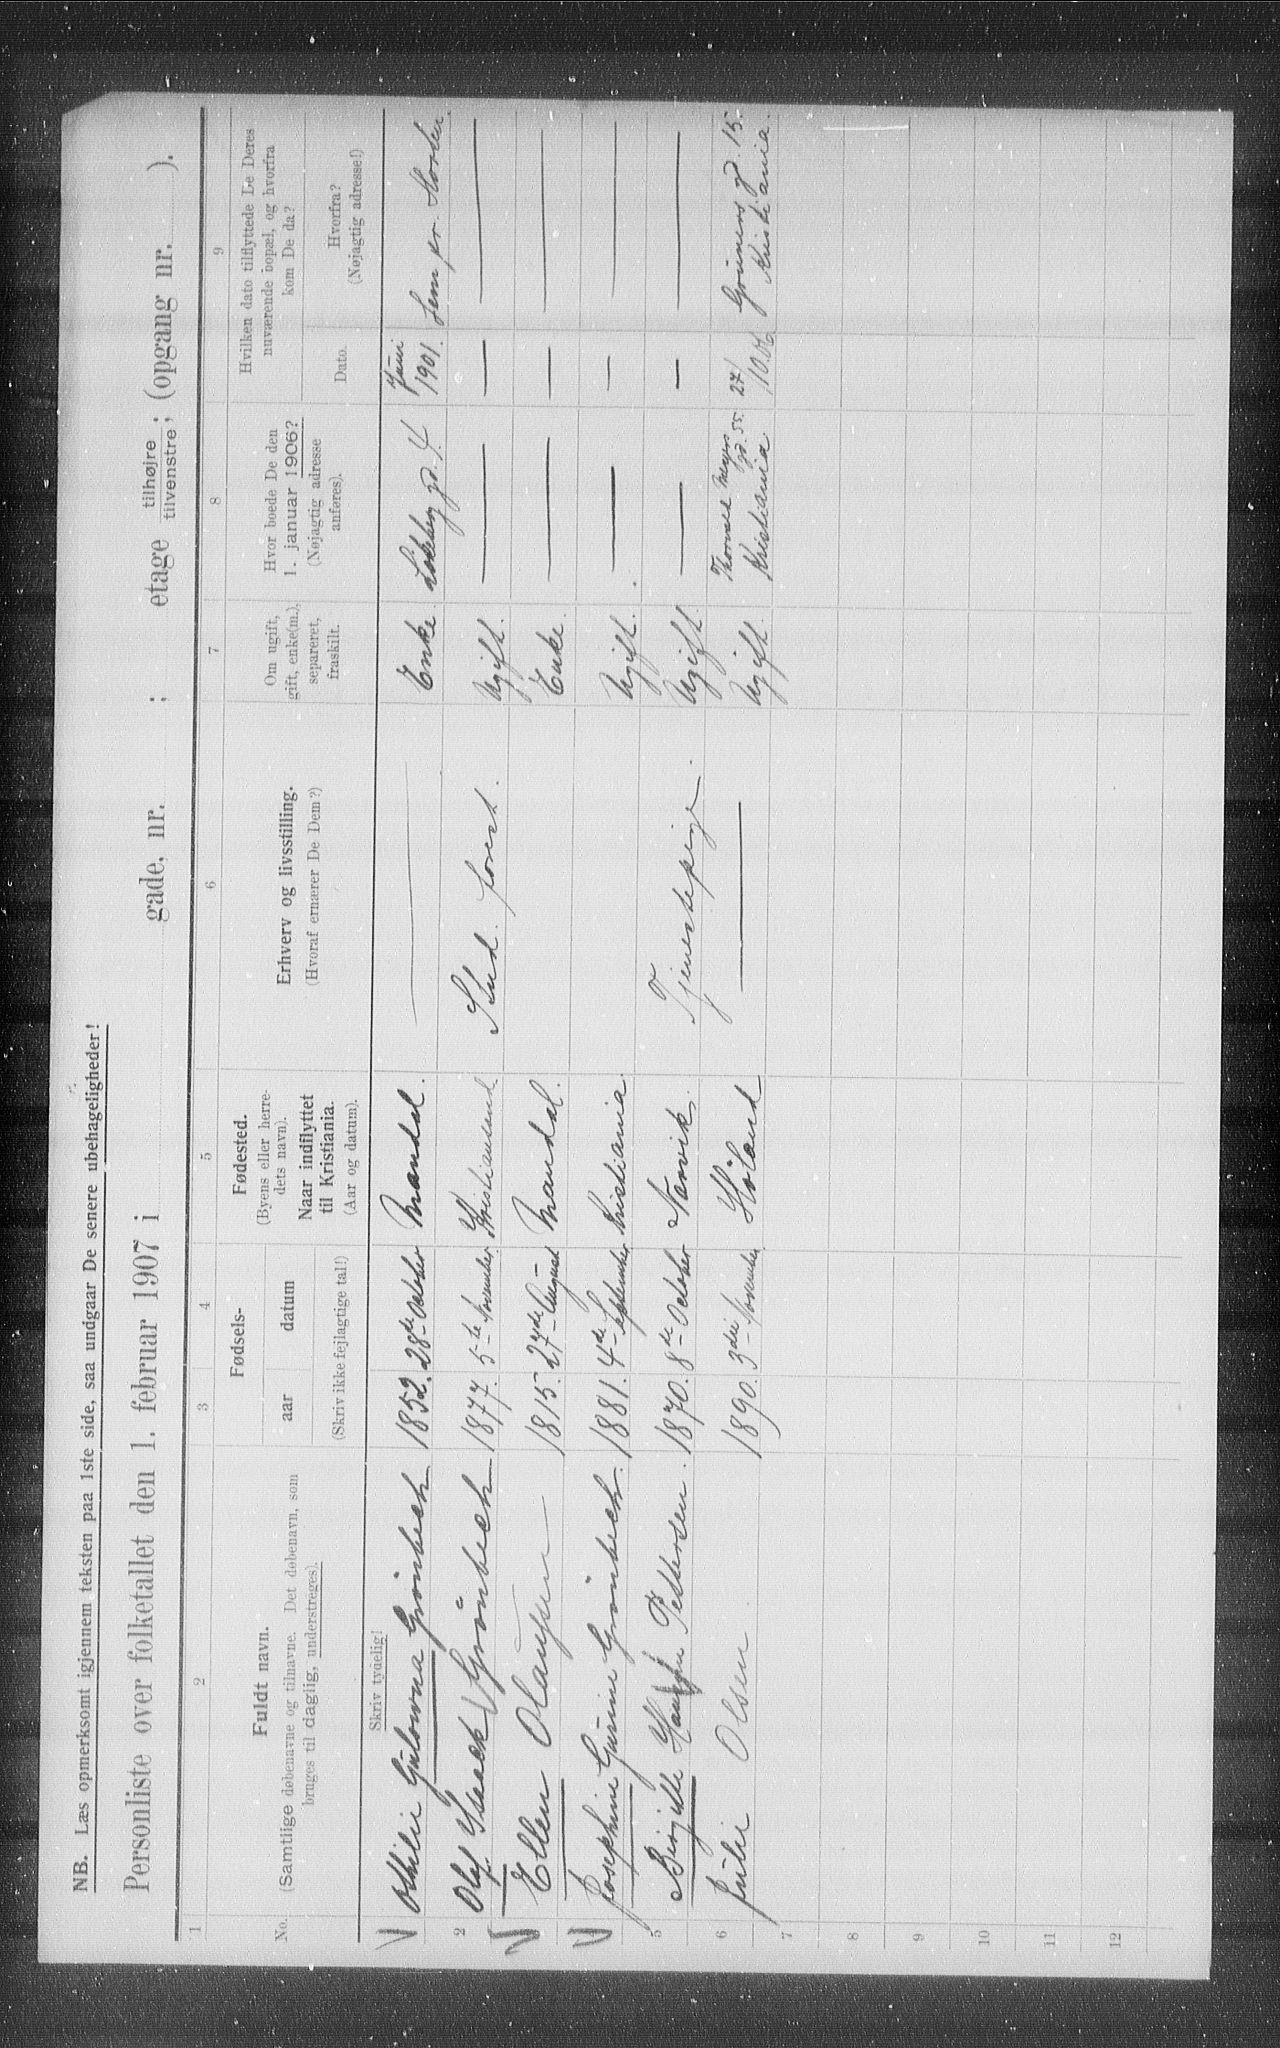 NB. Læs opmerksomt igjennem teksten paa 1ste side, saa undgaar De senere ubehageligheder!
Personliste over folketallet den 1. februar 1907 i gade, nr. ; etage tilhøjre tilvenstre; (opgang nr. ).
1 2 3 4 5 6 7 8 9
No.
Fuldt navn.
(Samtlige døbenavne og tilnavne. Det døbenavn, som
bruges til daglig, understreges).
Skriv tydelig!
Fødsels-
aar datum
(Skriv ikke fejlagtige tal!)
Fødested.
(Byens eller herre-
dets navn).
Naar indflyttet
til Kristiania.
(Aar og datum).
Erhverv og livsstilling.
(Hvoraf ernærer De Dem?)
Om ugift,
gift, enke(m.),
separeret,
fraskilt.
Hvor boede De den
1. januar 1906?
(Nøjagtig adresse
anføres).
Hvilken dato tilflyttede De Deres
nuværende bopæl, og hvorfra
kom De da?
Dato.
Hvorfra?
(Nøjagtig adresse!)
Othilie Gulowna Grönbech 1852. 28de October Mandal. — Enke. gd. 4 Juni 1901. Sem pr. Horten.
2 Olaf Isaach Grönbech 1877. 5te November Kristiansund Stud. forest. Ugift. — — —
Ellen Olausen — 1815. 27de August Mandal. Enke. — — —
Josephine Gurine Grönbech. 1881. 4de September Kristiania. Ugift. — — —
5 Birgitte Pettersen. 1870. 8de October Narvik. Tjenestepige. Ugift. — — —
6 Julie Olsen 1890. 3die November Höland — Ugift. Thorvald Meyers gd. 55. Kristiania. 27/10.06 Grüners gd. 15. Kristiania.
7
8
9
10
11
12